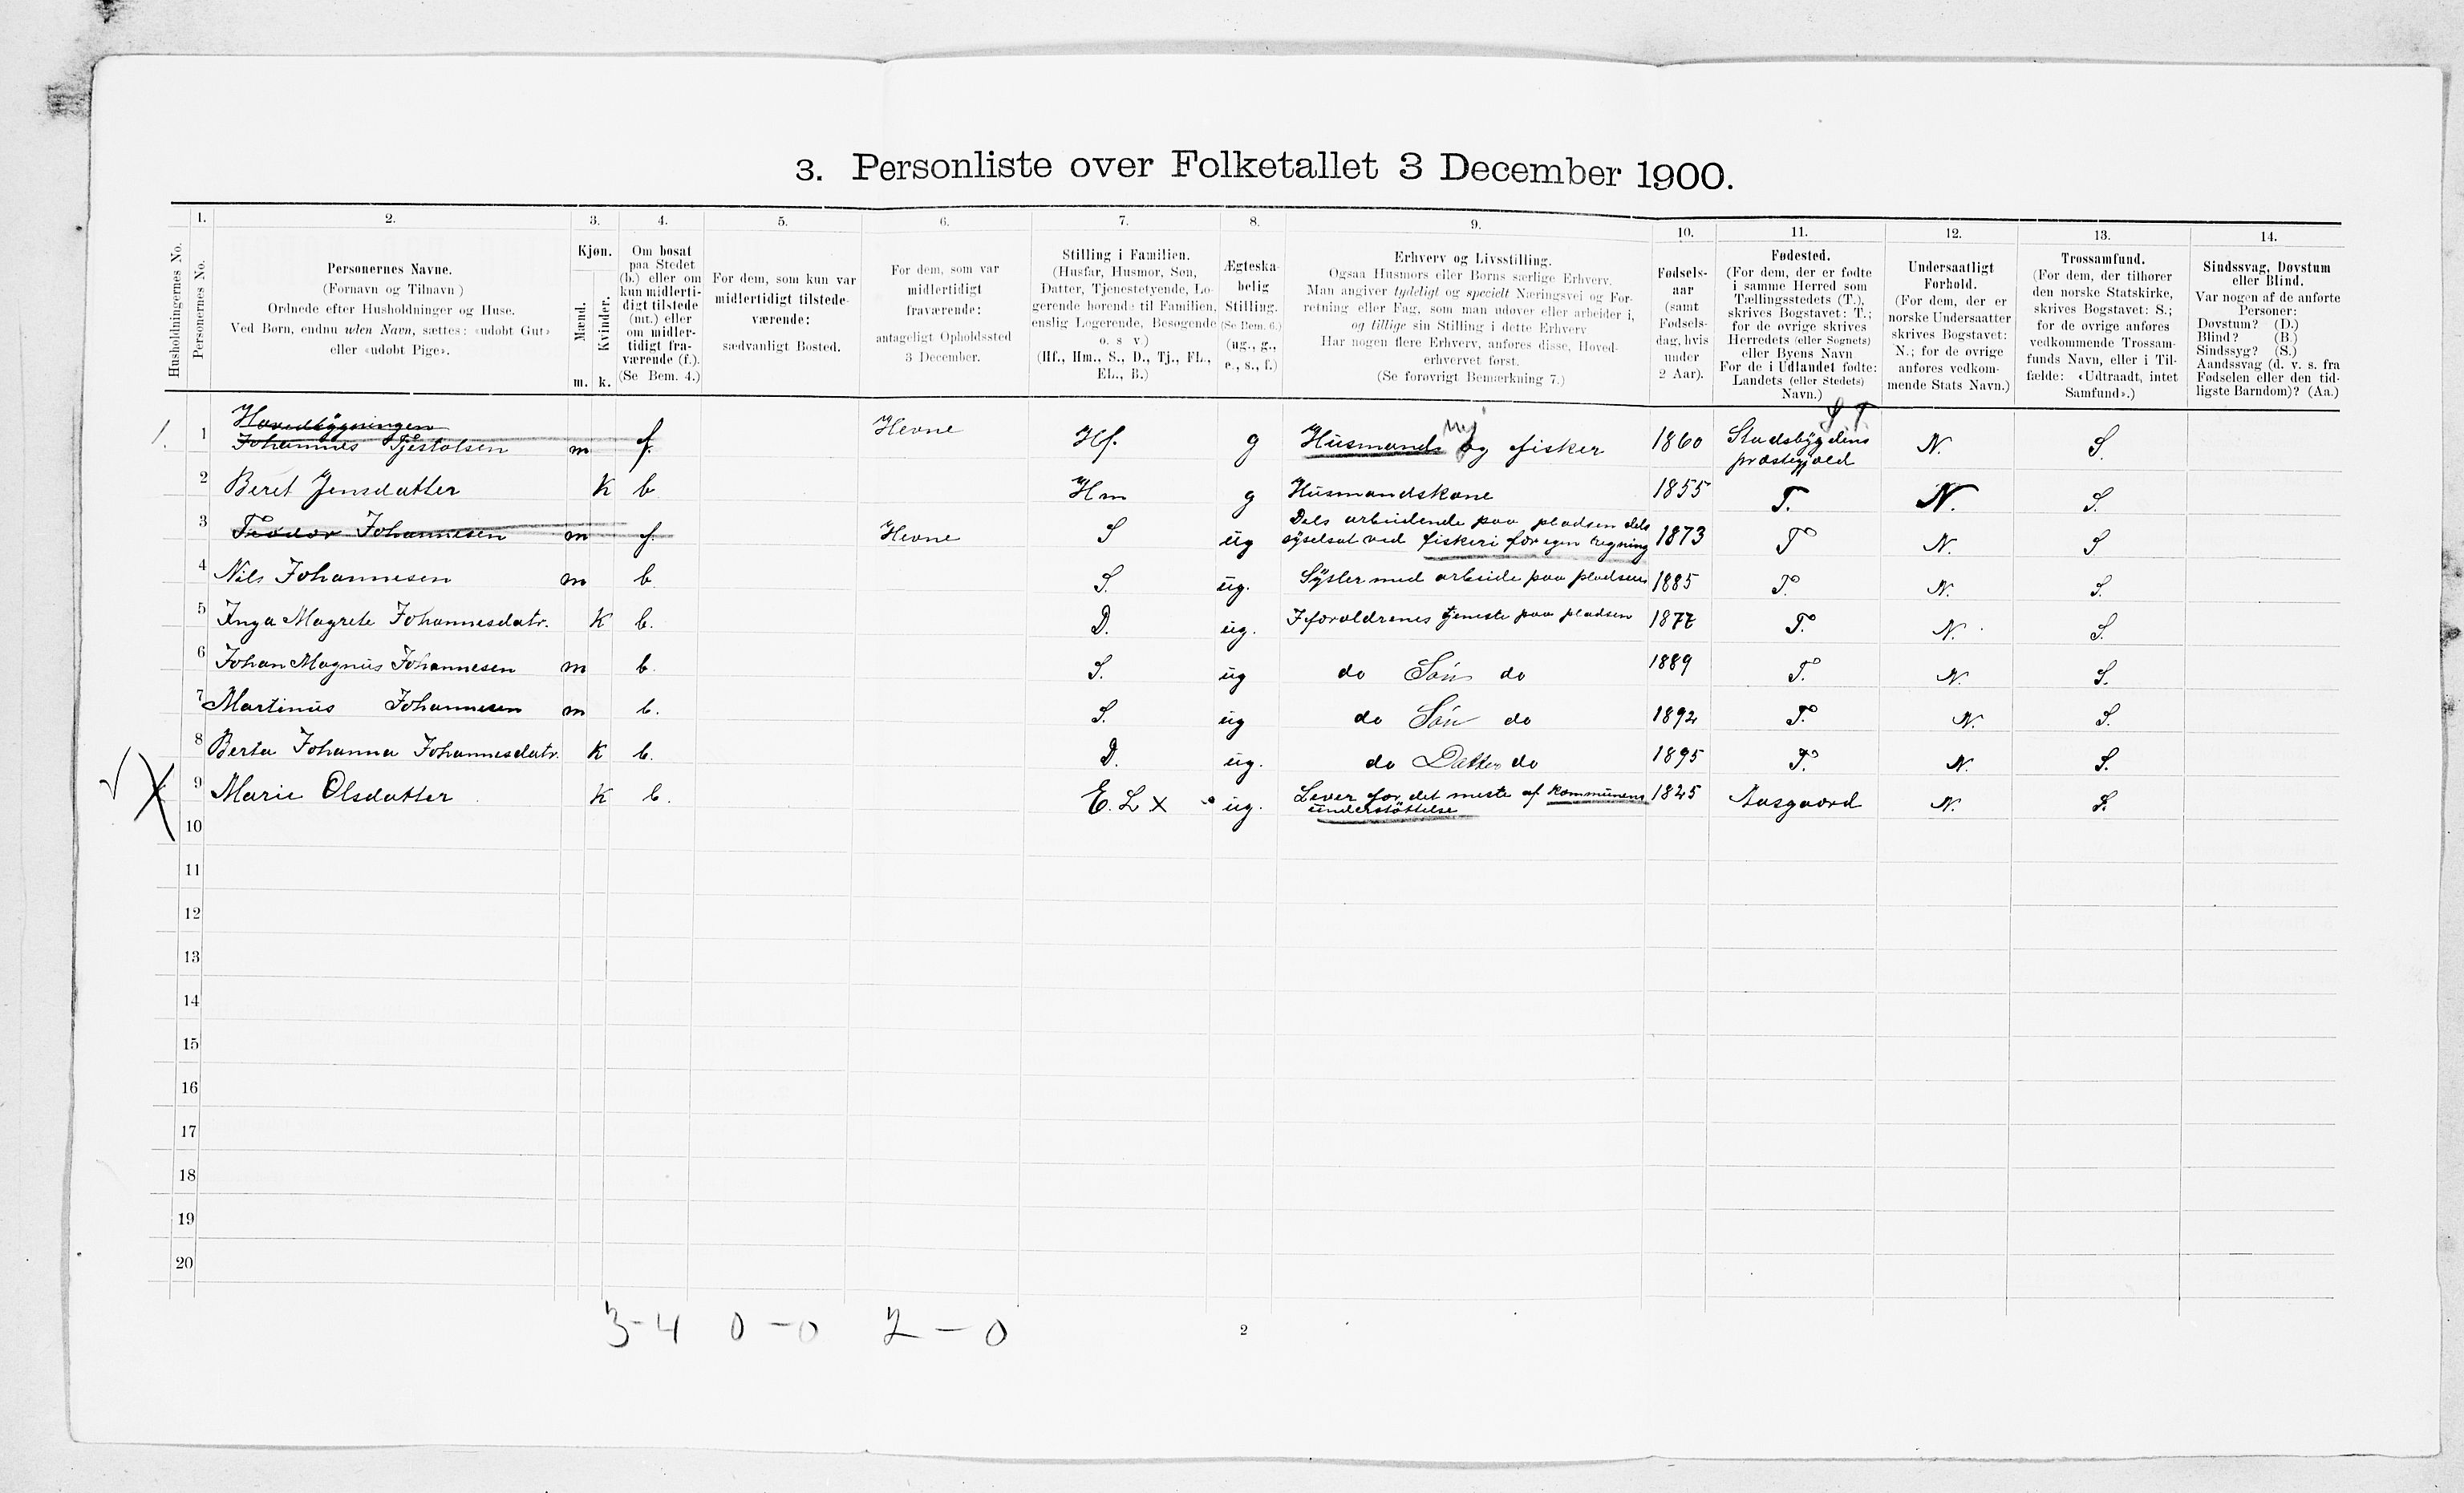 3. Personliste over Folketallet 3 December 1900.
1. 2. 3. 4. 5. 6. 7. 8. 9. 10. 11. 12. 13. 14.
Husholdningernes No.
Personernes No.
Personernes Navne.
(Fornavn og Tilnavn)
Ordnede efter Husholdninger og Huse.
Ved Børn, endnu uden Navn, sættes: «udøbt Gut»
eller «udøbt Pige».
Kjøn.
Mænd.
Kvinder.
m. k.
Om bosat
paa Stedet
(b.) eller om
kun midlerti-
digt tilstede
(mt.) eller
om midler-
tidigt fra-
værende (f.).
(Se Bem. 4.)
For dem, som kun var
midlertidigt tilstede-
værende:
sædvanligt Bosted.
For dem, som var
midlertidigt
fraværende:
antageligt Opholdssted
3 December.
Stilling i Familien.
(Husfar, Husmor, Søn,
Datter, Tjenestetyende, Lo-
gerende hørende til Familien,
enslig Logerende, Besøgende
o. s v.)
(Hf., Hm., S., D., Tj., FL.,
EL., B.)
Ægteska-
belig
Stilling.
(Se Bem. 6.)
(ug., g.,
e., s., f.)
Erhverv og Livsstilling.
Ogsaa Husmors eller Børns særlige Erhverv.
Man angiver tydeligt og specielt Næringsvei og For-
retning eller Fag, som man udøver eller arbeider i,
og tillige sin Stilling i dette Erhverv
Har nogen flere Erhverv, anføres disse, Hoved-
erhvervet først.
(Se forøvrigt Bemærkning 7.)
Fødsels-
aar
(samt
Fødsels-
dag, hvis
under
2 Aar).
Fødested.
(For dem, der er fødte
i samme Herred som
Tællingsstedets (T.),
skrives Bogstavet: T.;
for de øvrige skrives
Herredets (eller Sognets)
eller Byens Navn
For de i Udlandet fødte:
Landets (eller Stedets)
Navn.)
Undersaatligt
Forhold.
(For dem, der er
norske Undersaatter
skrives Bogstavet:
N.; for de øvrige
anføres vedkom-
mende Stats Navn.)
Trossamfund.
(For dem, der tilhører
den norske Statskirke,
skrives Bogstavet: S.;
for de øvrige anføres
vedkommende Trossam-
funds Navn, eller i Til-
fælde: «Udtraadt, intet
Samfund».)
Sindssvag, Døvstum
eller Blind.
Var nogen af de anførte
Personer:
Døvstum? (D.)
Blind? (B.)
Sindssyg? (S.)
Aandssvag (d. v. s. fra
Fødselen eller den tid-
ligste Barndom)? (Aa.)
Hovedbygningen
1. 1 Johannes Tjestolsen m f. Hevne Hf. g Husmands og fisker 1860 Stadsbygdens N. S.
præstegjæld
2 Beret Jensdatter K b Hm g Husmandskone 1855 T. N. S.
Dels arbeidende paa pladsen dels
3 Teodor Johannesen m f. Hevne S ug sýselsat ved fiskeri for egen regning 1873 T N. S
4 Nils Johannesen m b. S. ug. Sýsler med arbeide paa pladsen 1885 T. N. S.
5 Inga Magrete Johannesdatr. K b. D. ug. I forældrenes tjeneste paa pladsen 1877 T. N. S.
6 Johan Magnus Johannesen m b. S. ug do Søn do 1889 T. N. S.
7 Martinus Johannesen m b. S. ug do Søn do 1892 T. N. S.
8 Berta Johanna Johannesdatr. K b. D. ug. do Datter do 1895 T. N. S.
9 Marie Olsdatter K b. E. L x ug. Lever for det meste af kommunens 1825 Aasgaard N. S.
understøttelse
10
11
12
13
14
15
16
17
18
19
20
3-4 0-0 2-0
2